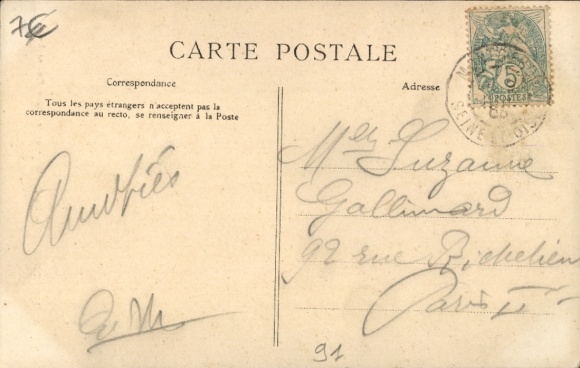 7€
CARTE POSTALE
Correspondance
Adresse
Tous les pays étrangers n'acceptent pas la
correspondance au recto, se renseigner à la Poste
5
POSTES
SEINE ET OISE
Amitiés
Melle Suzanne
Gallimard
92 rue Richelieu
Paris
91